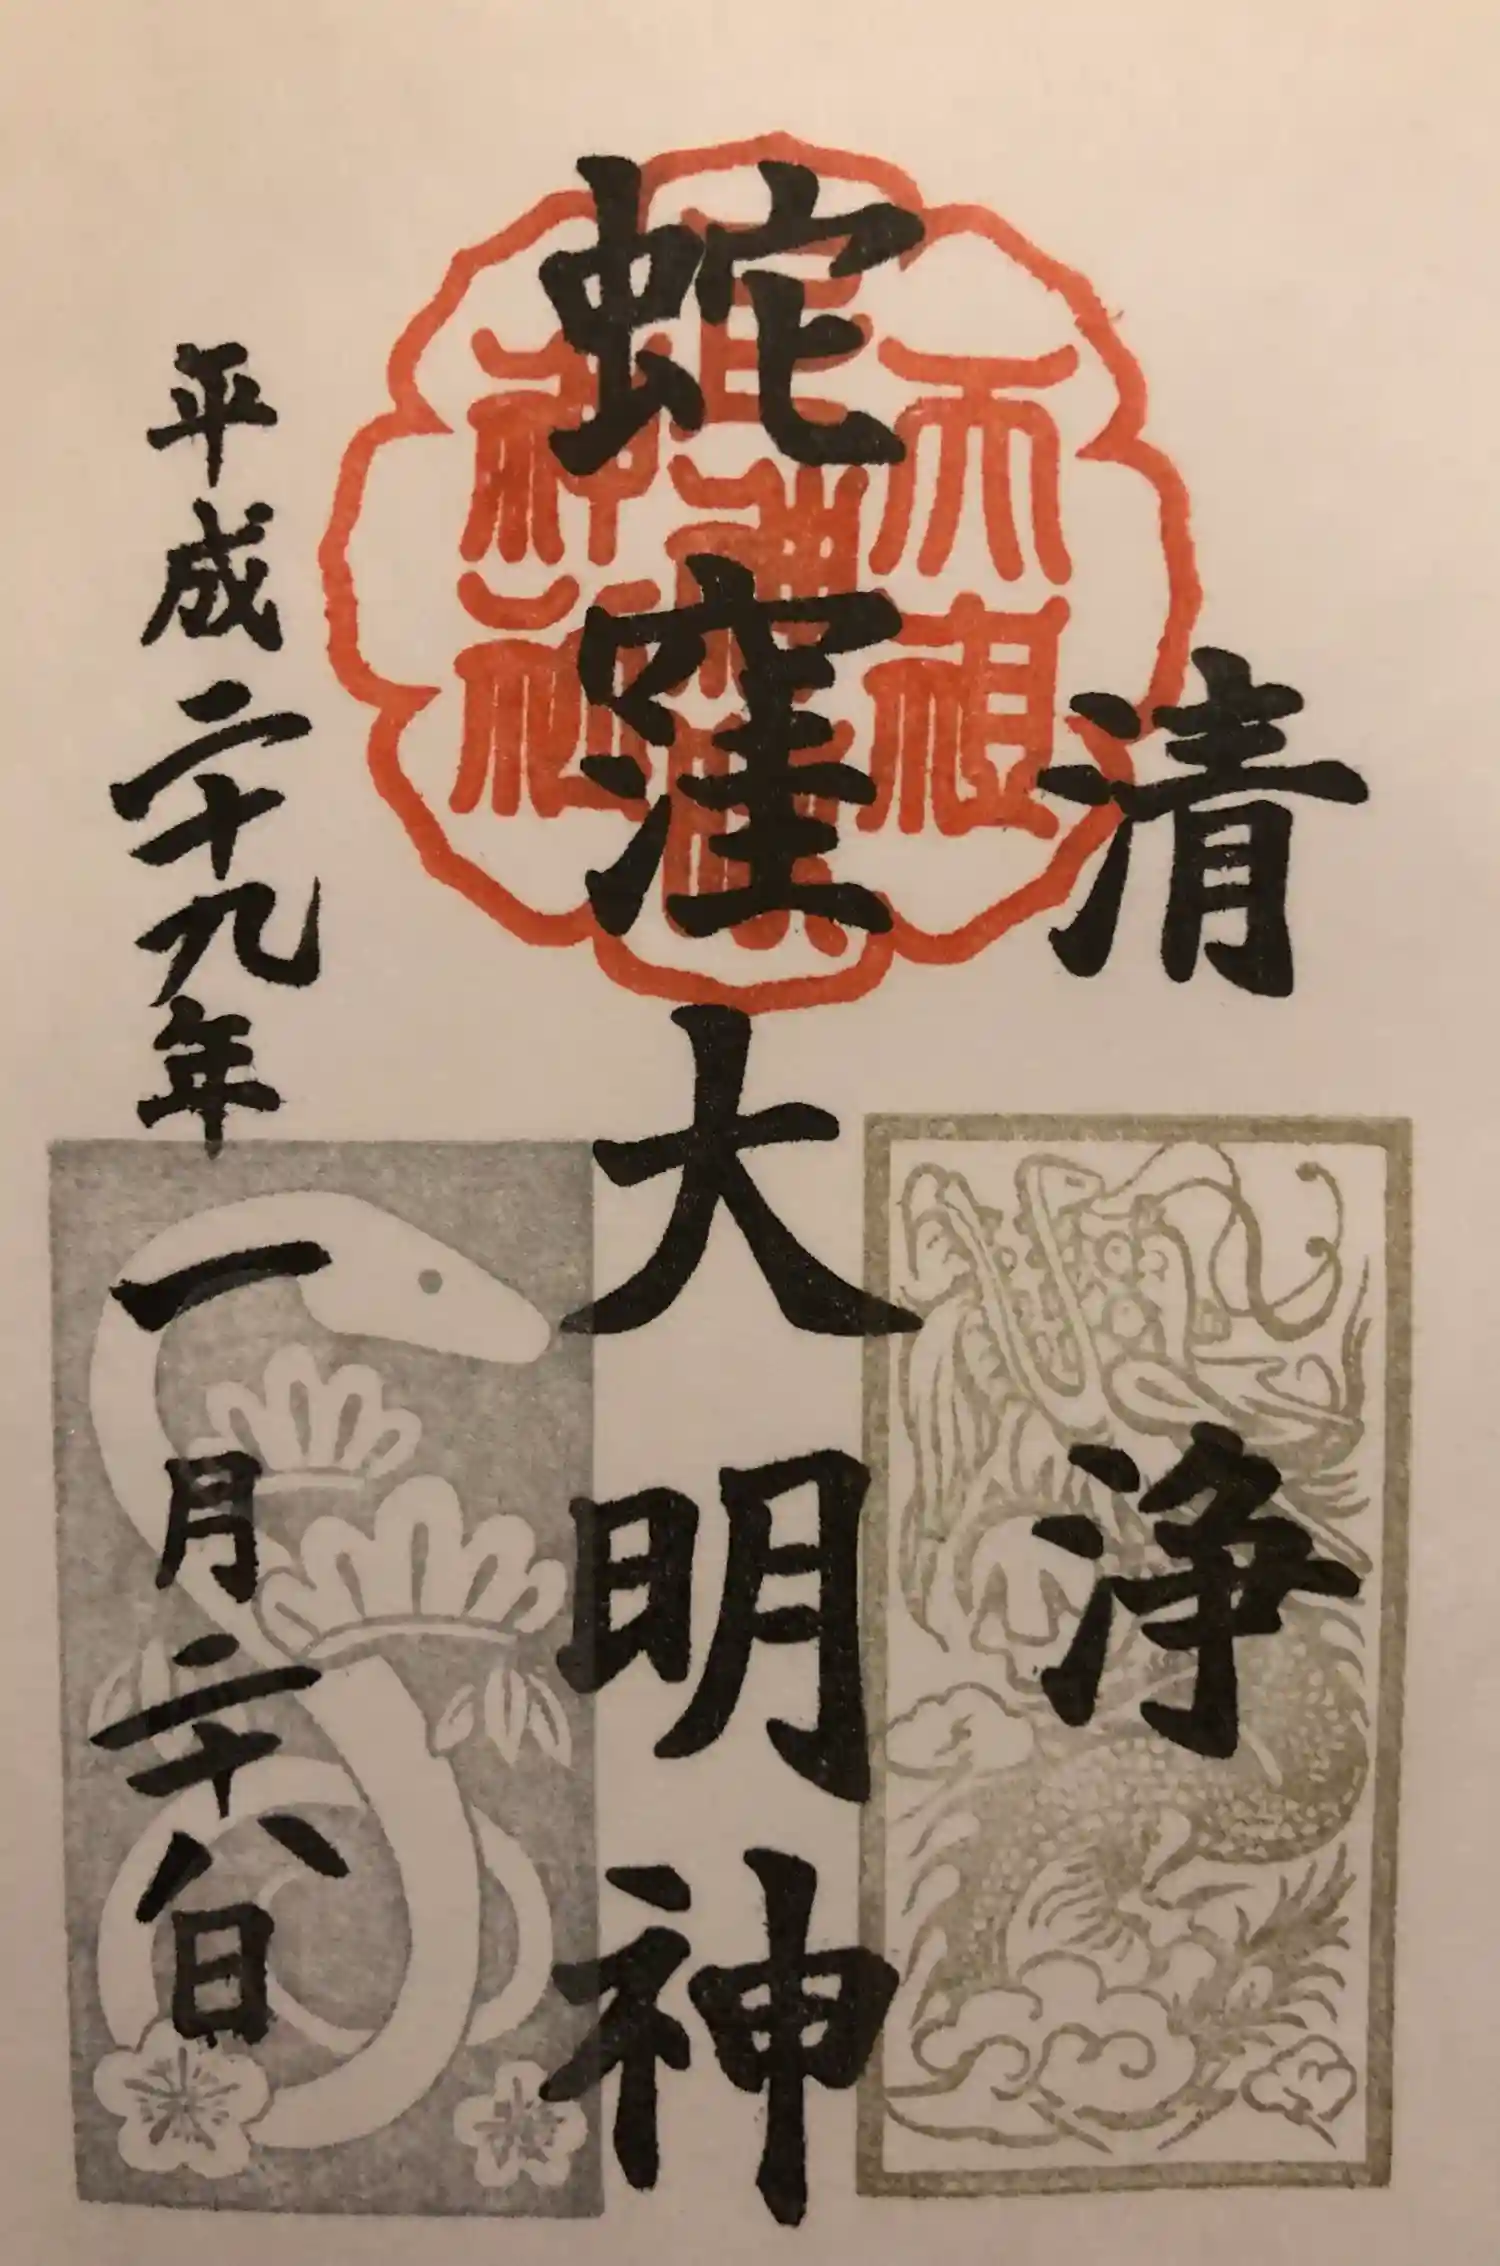 清浄
蛇窪大明神
平成二十九年一月二十八日
天祖
神社